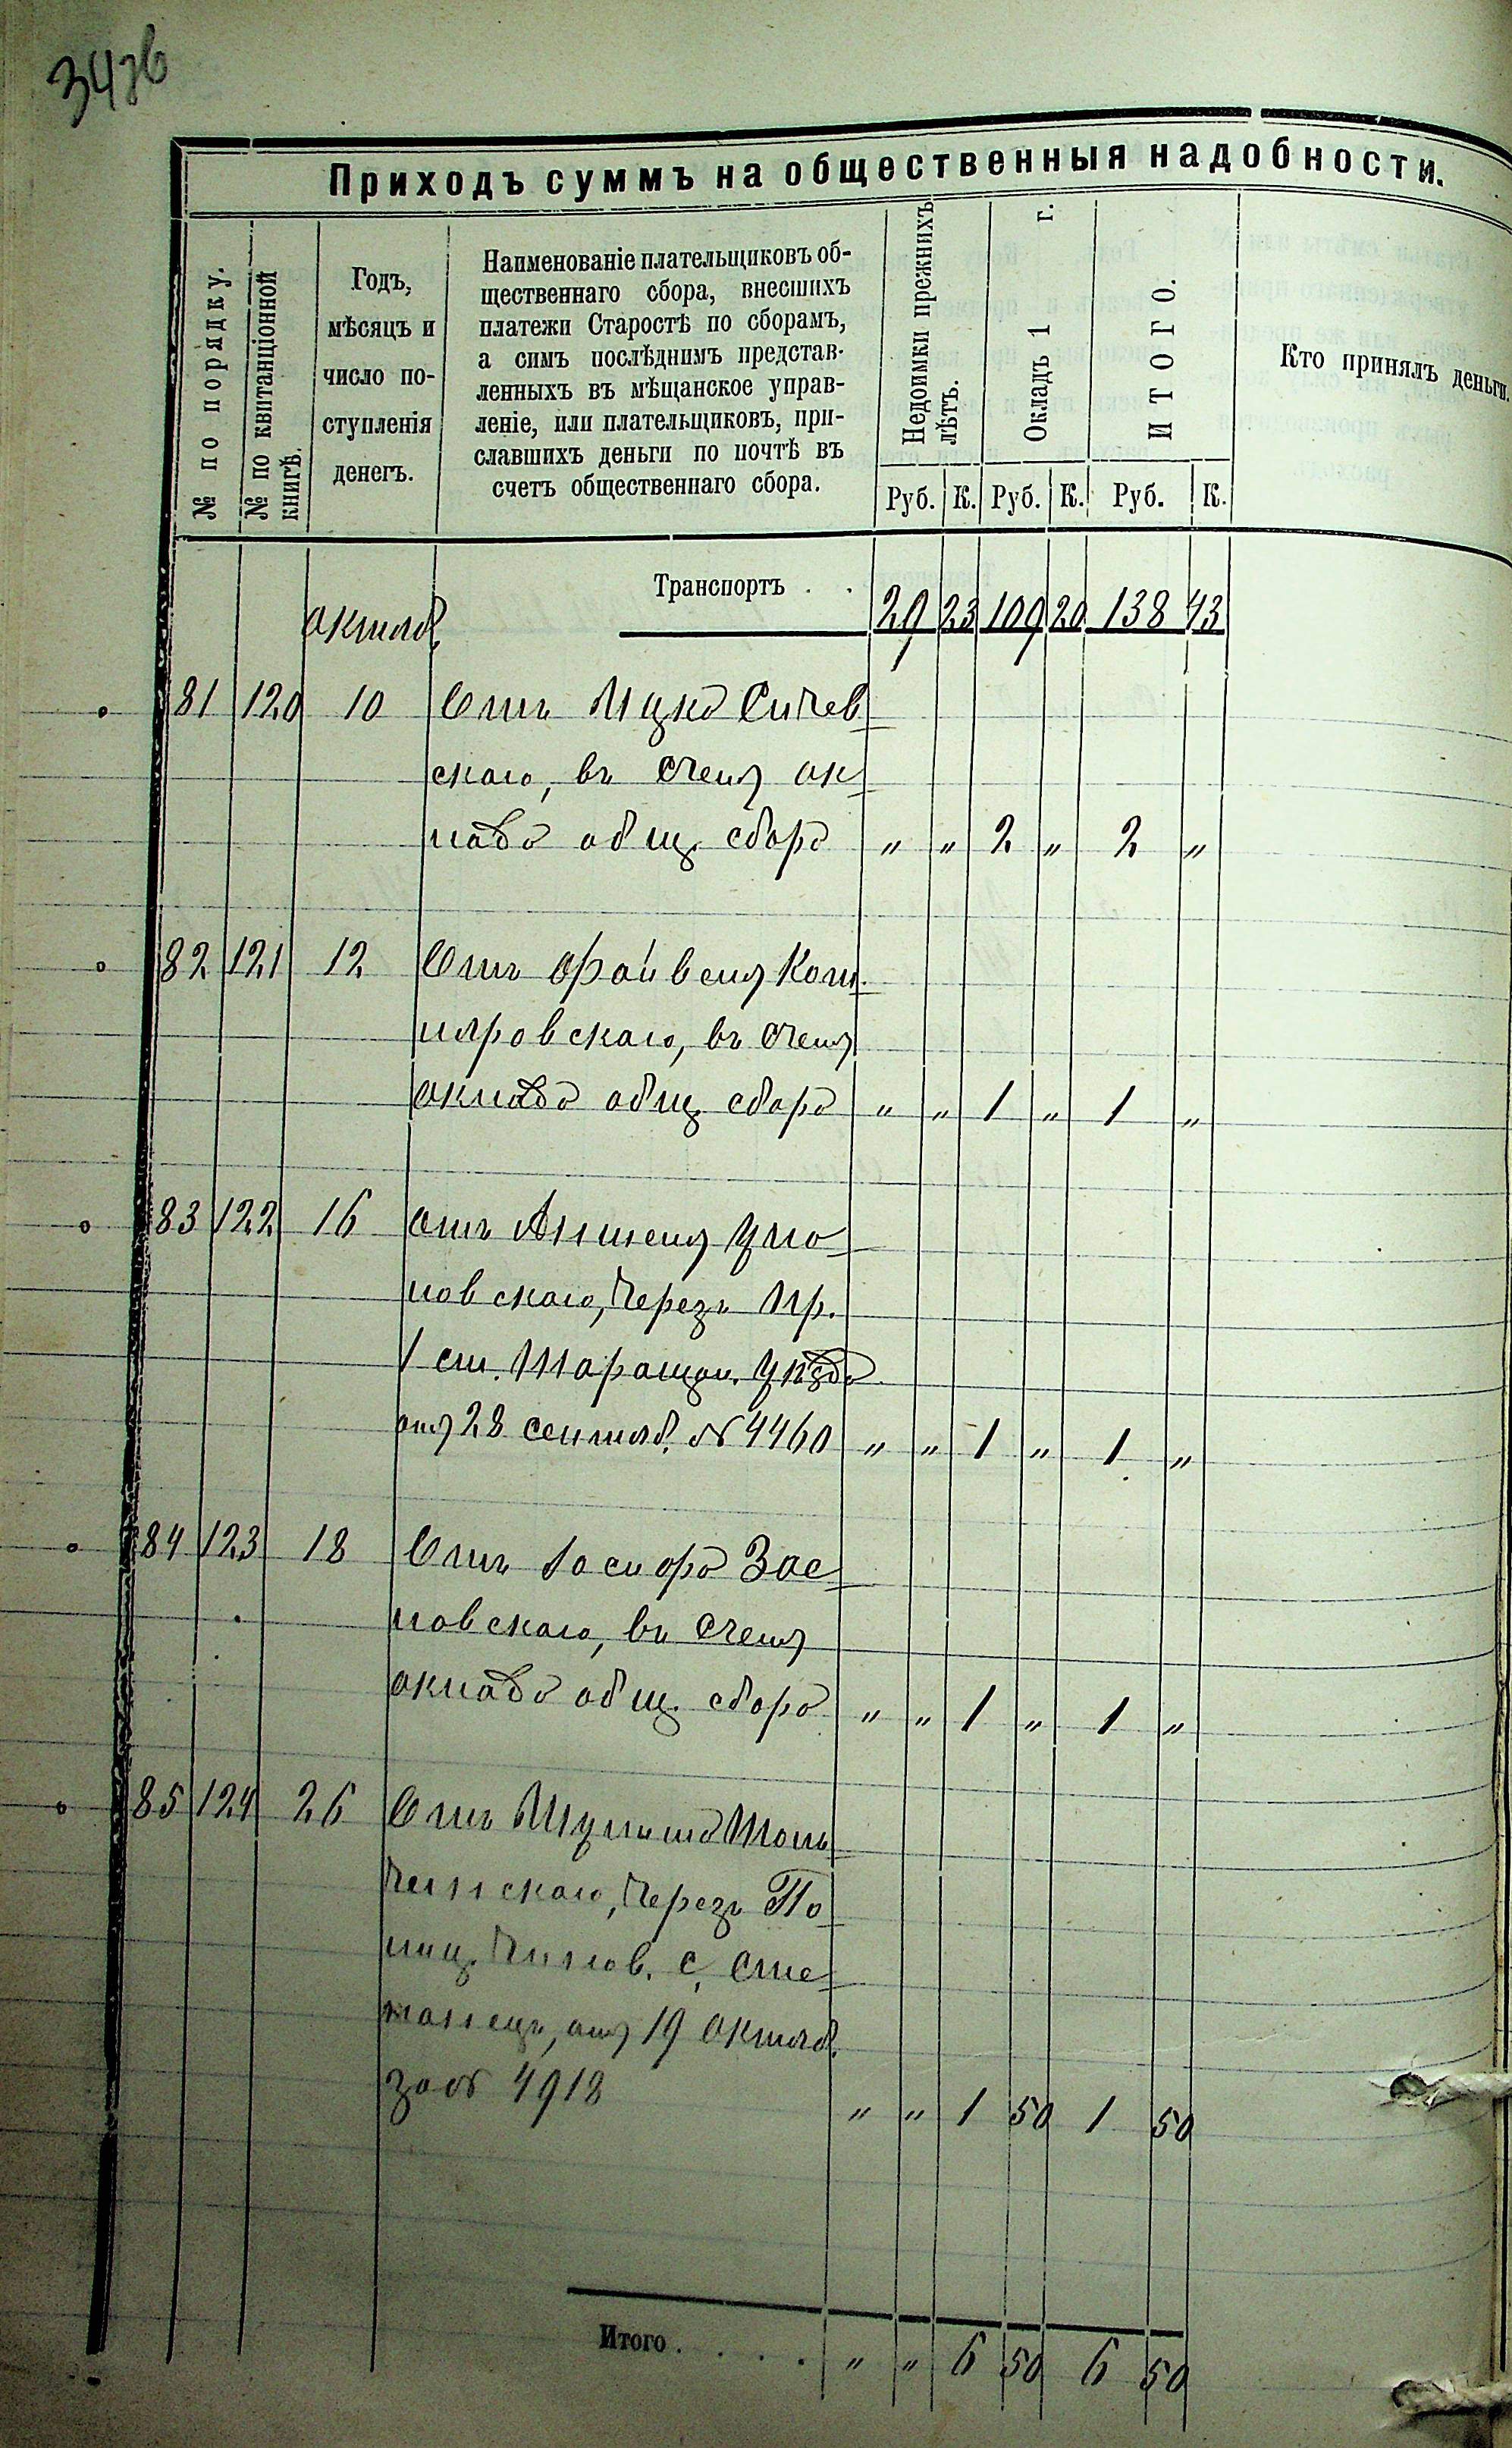 34об
Приходъ суммъ на общественныя надобности.
№ по порядку.
№ по квитанціонной
книгѣ.
Годъ,
мѣсяцъ и
число по-
ступленія
денегъ.
Наименованіе плательщиковъ об-
щественнаго сбора, внесшихъ
платежи Старостѣ по сборамъ,
а симъ послѣднимъ представ-
ленныхъ въ мѣщанское управ-
леніе, или плательщиковъ, при-
славшихъ деньги по почтѣ въ
счетъ общественнаго сбора.
Недоимки прежнихъ
лѣтъ.
Окладъ 1 г.
ИТОГО.
Кто принялъ деньги.
Руб. К. Руб. К. Руб. К.
Транспортъ . . 29 23 109 20 138 43
октяб.
81 120 10 Отъ Ицка Сичев
скаго, въ счет ок
лада общ. сбора " " 2 " 2 "
82 121 12 Отъ Файвеля Кот
ляровскаго, въ счет
оклада общ. сбора " " 1 " 1 "
83 122 16 отъ Аншеля
новскаго, через Пр.
1 ст. Таращан. уѣзда
от 28 сентяб. № 4460 " " 1 " 1 "
84 123 18 Отъ Іосифа Зас
лавскаго, въ счет
оклада общ. сбора " " 1 " 1 "
85 124 26 Отъ
чинскаго, через По
лиц. чинов. с.
от 19 октяб.
за № 4918 " " 1 50 1 50
Итого . . . . " " 6 50 6 50